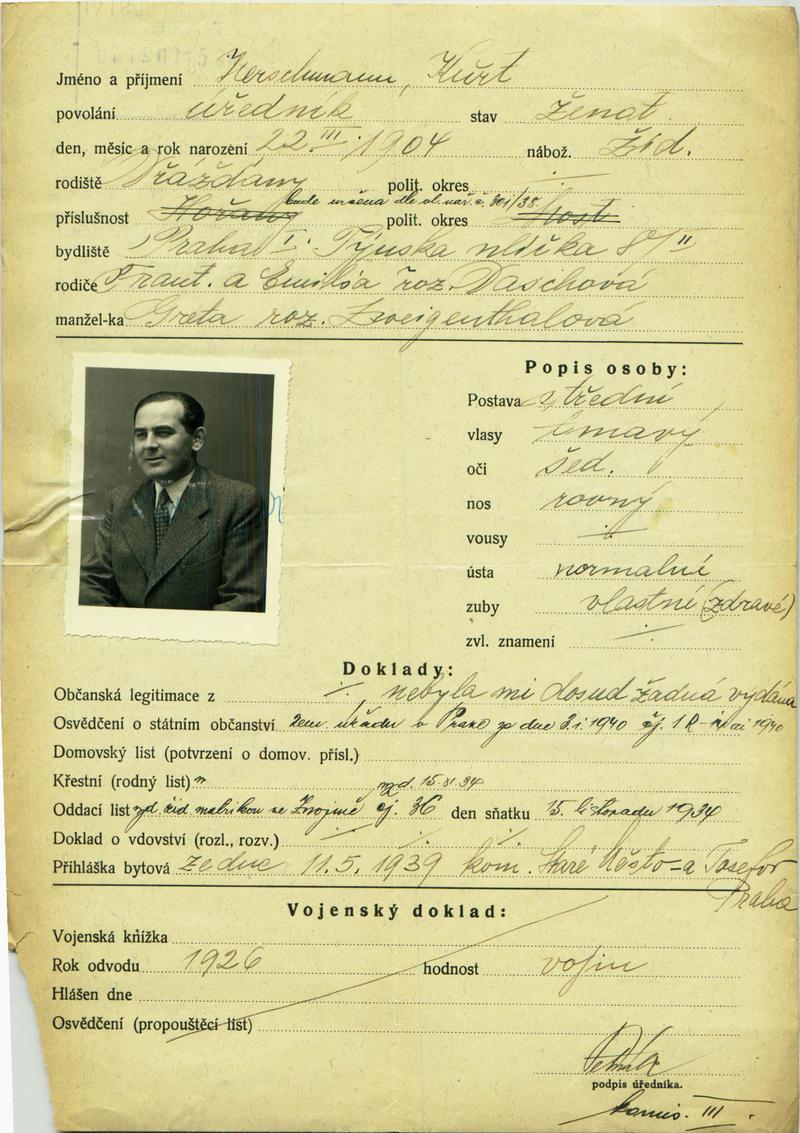 Jméno a příjmení Herschmann, Kurt
povolání úředník stav ženat.
den, měsíc a rok narození 22 III. 1904 nábož. žid.
rodiště Drážďany polit. okres ·/·
bude určena dle vl. nař. č. 301/38.
příslušnost Hořany polit. okres Most
bydliště Praha I. Týnská ulička 8/II
rodiče Frant. a Emilia roz. Daschová
manžel-ka Greta roz. Zweigenthalová
Popis osoby:
Postava střední
vlasy tmavý
oči šed.
nos rovný
vousy ·/·
ústa normalní
zuby vlastní (zdravé)
zvl. znamení ·/·
Doklady:
Občanská legitimace z ·/· nebyla mi dosud žadná vydána
Osvědčení o státním občanství zem. úřadu v Praze ze dne 2.1.1940 čj. 1R- 1940
Domovský list (potvrzení o domov. přísl.)
Křestní (rodný list)
Oddací list žid. matrikou ve Znojmě čj. 36 den sňatku 15. listopadu 1934
Doklad o vdovství (rozl., rozv.) ·/· ·/· ·/·
Přihláška bytová ze dne 11.5.1939 kom. Staré Město-a Josefov
Praha
Vojenský doklad:
Vojenská knížka
Rok odvodu 1926 hodnost vojín
Hlášen dne
Osvědčení (propouštěcí list)
podpis úředníka.
komis. III.